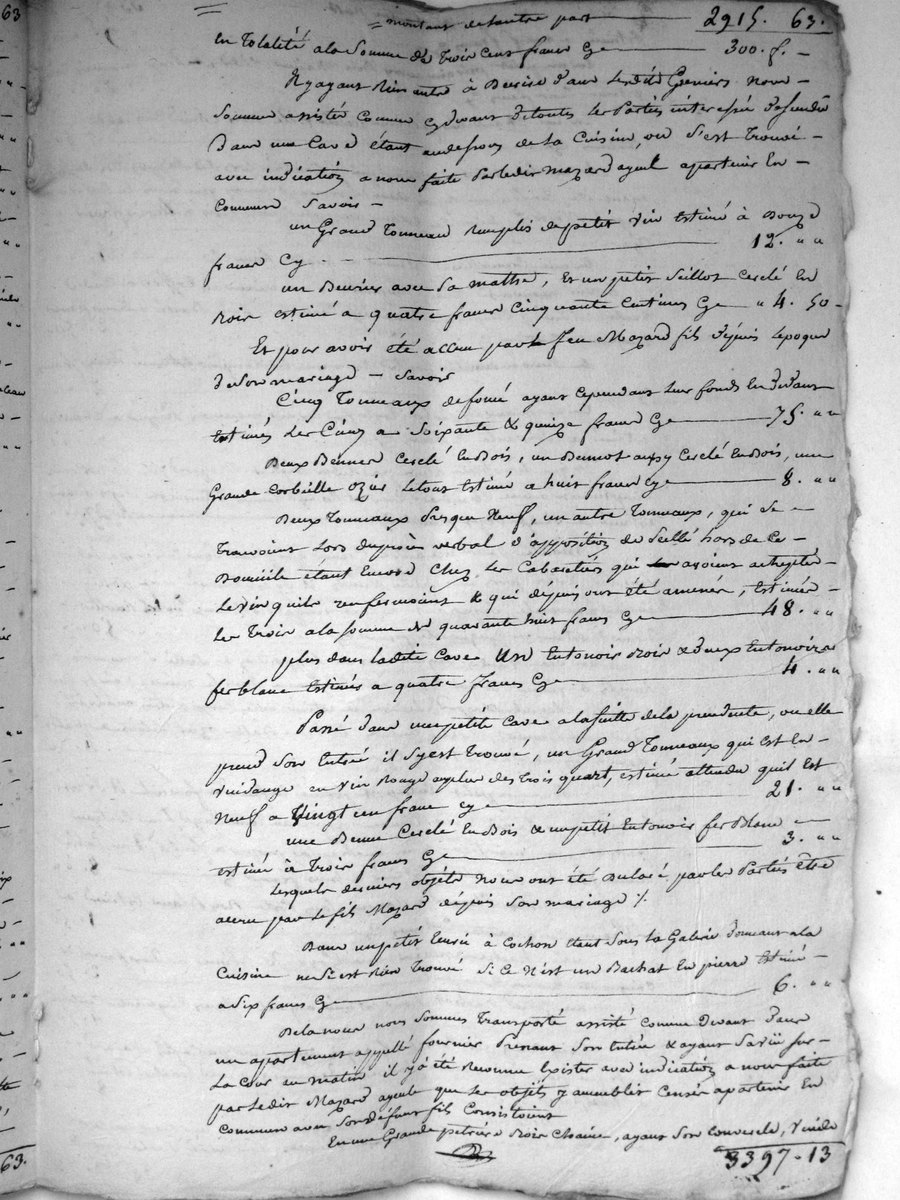 = montant de lautre part — 2915. 63.
en totalité a la Somme de trois cent francs Cy — 300. f. —
Nyayant Rien autre à Decrire dans lesdits Greniers Nous
Somme assistés comme cydevant de toutes les Parties interessés
Dans une Cave étant audessous de la Cuisine, ou S'est trouvé
avec indication a nous faite Par ledit Mazard ayeul apartenir En
Commun Savoir —
un Grand Tonneau Remplis de petit vin Estimé à Douze
francs Cy — 12. " "
un Beurrier avec Sa, Et un petit Seillot Cerclé En
Estimé a quatre francs Cinquante Centimes Cy — " 4. 50
Et pour avoir été accru par feu Mazard fils depuis lepoque
de Son mariage — Savoir
Cinq Tonneaux defoncé ayant cependant leur fonds En devant
Estimés les Cinq a Soixante & quinze francs Cy — 75. " "
Deux Bennes Cerclé En Bois, un Bennot aussy Cerclé En Bois, une
Grande Corbeille Ozier le tout Estimé a huit francs Cy — 8. " "
Deux Tonneaux Presque Neuf, un autre Tonneaux, qui Se
trouvoient Lors du procès verbal d'apposition de Scellé hors de Ce
Domicile etant Encore Chez les Cabaretiers qui avoient achepter
le vin quils renfermoient & qui depuis ont été amener, Estimés
les trois a la Somme de quarante huit francs Cy — 48. " "
plus dans ladite Cave un Entonoir Noir & deux Entonoirs
fer blanc Estimés a quatre francs Cy — 4. " "
Passé dans une petite Cave a la suitte de la precedente, ou elle
prend Son Entrée il Sy est trouvé, un Grand Tonneaux qui est En
vuidange en vin Rouge aplus des trois quart, estimé attendu quil Est
Neuf a Vingt un franc Cy — 21. " "
une Benne Cerclé En Bois & un petit Entonoir fer Blanc
estimé à trois francs Cy — 3. " "
Lesquels derniers objets Nous ont été Declaré par les Parties être
accru par le fils Mazard depuis Son mariage ./.
Dans un petit Ecurie à Cochon Etant Sous la Galerie donnant a la
Cuisine ne S'est Rien Trouvé Si Ce N'est un Bachat En pierre Estimé
a Six francs Cy — 6. " "
De la nous nous Sommes Transporté assisté comme devant dans
un apartement appellé fournier Prenant Son Entrée & ayant Sa vüe sur
La Cour au matin il y a été Reconnu Exister avec indication a nous faite
par ledit Mazard ayeule que les objets y Censer apartenir En
Commun avec Son défunt fils Consistoient
En une Grande petriere Noir Chaine, ayant Son Couvercle, vuide
3397 . 13